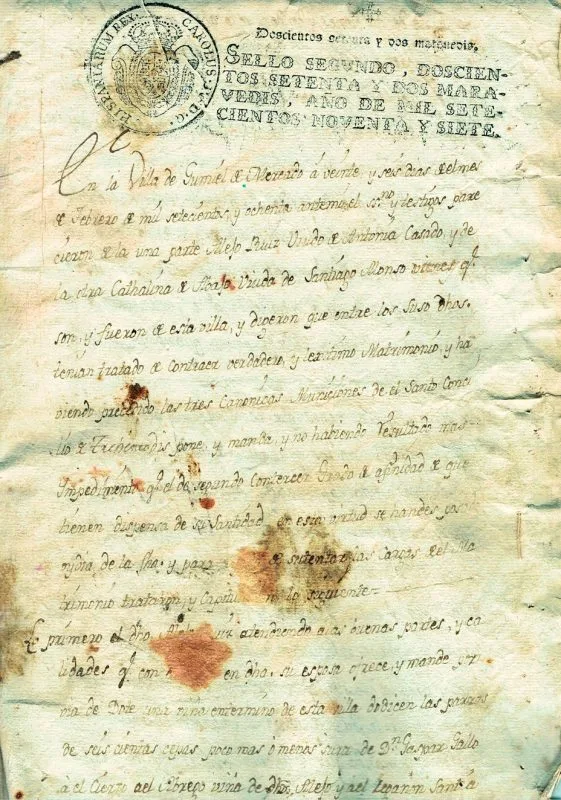 HISPANIARUM REX CAROLUS IV D.G.
Doscientos setenta y dos maravedis.
SELLO SEGVNDO, DOSCIEN-
TOS SETENTA Y DOS MARA-
VEDIS, AÑO DE MIL SETE-
CIENTOS NOVENTA Y SIETE.
En la Villa de Gumiel de Mercado á veinte y seis dias del mes
de Febrero de mil setecientos, y ochenta antemi el ssno y testigos pare
cieron de la una parte Alejo Ruiz Viudo de Antonia Casado, y de
la otra Cathalina de Viuda de Santiago Alonso qe
son, y fueron de esta villa, y digeron que entre los Suso dhos.
tenian tratado de contraer verdadero, y lexitimo Matrimonio, y ha
viendo precedido las tres Canonicas Muniziones de el Santo Conci
lio de pone, y manda, y no habiendo resultado mas
Impedimento qe el de segundo Contercer Grado de afinidad de que
tienen dispensa de su Santidad en esta virtud se han de
de la fha. y para de las Cargas del Ma
trimonio trataron, y lo siguiente
Lo primero el dho Alejo Ruiz atendiendo a las buenas partes, y ca
lidades qe con en dha. su esposa ofrece, y manda
de Dote una viña en termino de esta villa do dicen las
de seis cientas cepas poco mas ó menos surca de Dn Gaspar Gallo
á el Cierzo a el Abrego viña de dho Alejo y a el